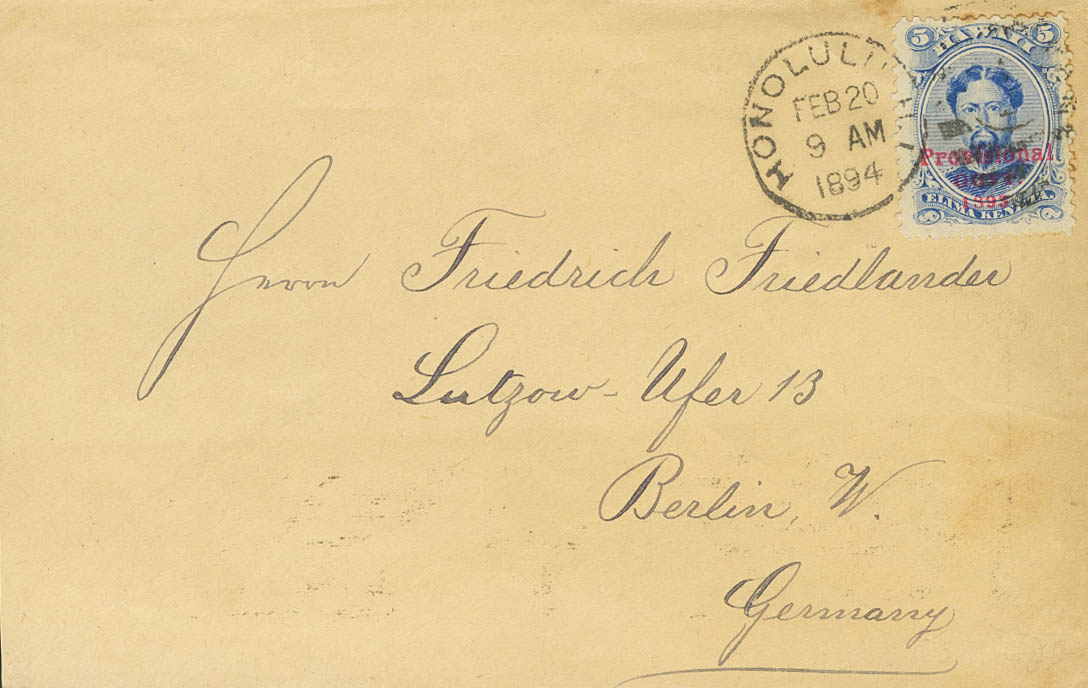 5 HAWAII 5
HONOLULU
FEB 20
9 AM
1894
Provisional
GOVT.
1893
ELIMA KENETA
Herrn Friedrich Friedlander
Lutzow-Ufer 13
Berlin, W.
Germany